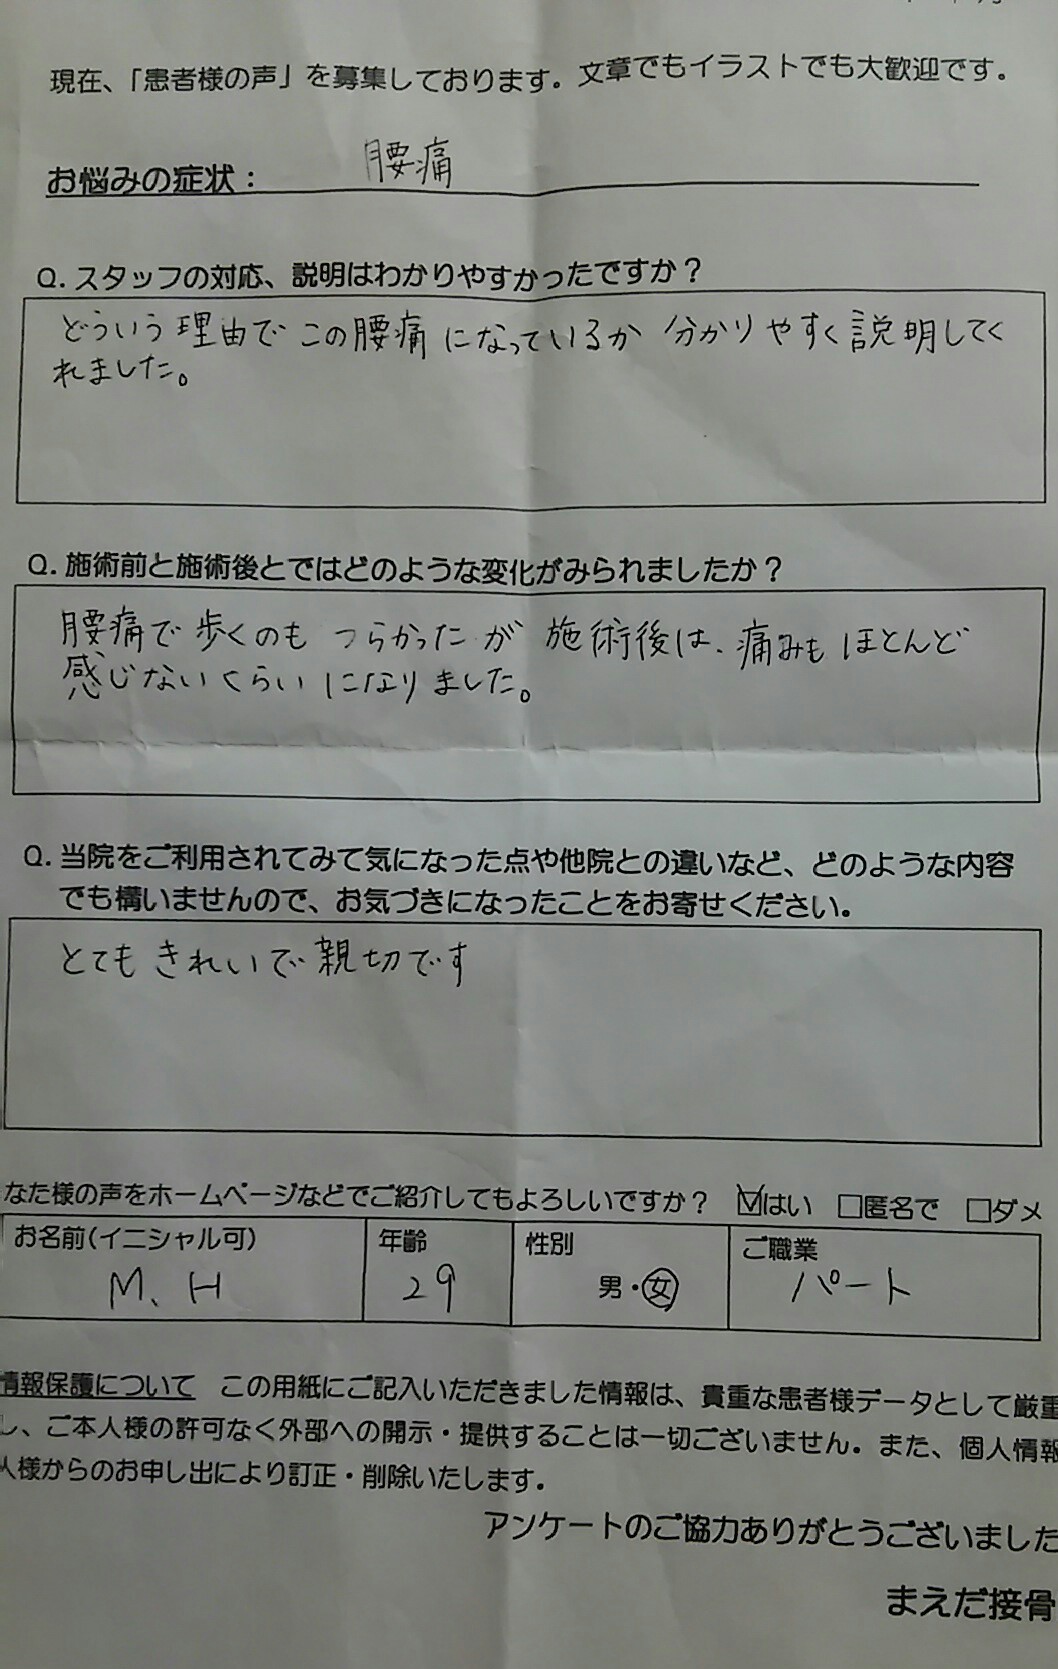 現在、「患者様の声」を募集しております。文章でもイラストでも大歓迎です。
お悩みの症状： 腰痛
Q. スタッフの対応、説明はわかりやすかったですか？
どういう理由でこの腰痛になっているか 分かりやすく説明してく
れました。
Q. 施術前と施術後とではどのような変化がみられましたか？
腰痛で歩くのもつらかったが 施術後は、痛みもほとんど
感じないくらいになりました。
Q. 当院をご利用されてみて気になった点や他院との違いなど、どのような内容
でも構いませんので、お気づきになったことをお寄せください。
とてもきれいで親切です
なた様の声をホームページなどでご紹介してもよろしいですか？ ☑はい □匿名で □ダメ
お名前(イニシャル可) 年齢 性別 ご職業
M、H 29 男・女 パート
情報保護について この用紙にご記入いただきました情報は、貴重な患者様データとして厳重
し、ご本人様の許可なく外部への開示・提供することは一切ございません。また、個人情報
人様からのお申し出により訂正・削除いたします。
アンケートのご協力ありがとうございました
まえだ接骨